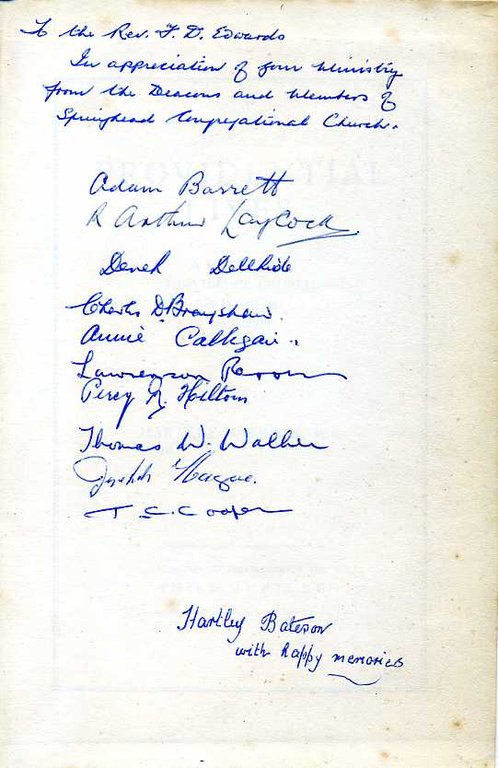 To the Rev. F. D. Edwards
In appreciation of your Ministry
from the Deacons and Members of
Springhead Congregational Church.
Adam Barrett
R Arthur Laycock
Derek
Charles D. Brayshaw.
Annie
Lawrenson
Percy N. Hilton
Thomas W. Walker
Joseph Hague.
T. C. Cooper
Hartley Bateson
with happy memories